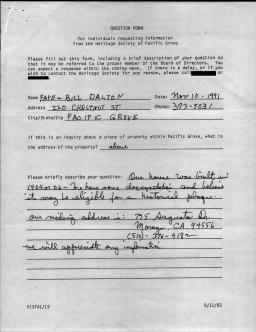 QUESTION FORM
For individuals requesting information
from the Heritage Society of Pacific Grove
Please fill out this form, including a brief description of your question so
that it may be referred to the proper member of the Board of Directors. You
can expect a response within the coming week. If there is a delay, or if you
wish to contact the Heritage Society for any reason, please call or
Name BILL DALTON Date: Nov 10-1991
Address 220 CHESTNUT ST Phone: 373-
City/State/Zip PACIFIC GROVE
If this is an inquiry about a piece of property within Pacific Grove, what is
the address of the property? above
Please briefly describe your question: Our house was built in
1904 or 06 - We have some documentation and believe
it may be eligible for a historical plaque.
our mailing address is: 735 Augusta Dr
Moraga, CA 94556
(510) - 376 - 4182
we will appreciate any information.
8/11/83